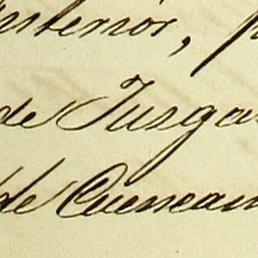 interior, p
de Jusga
de Cuencam